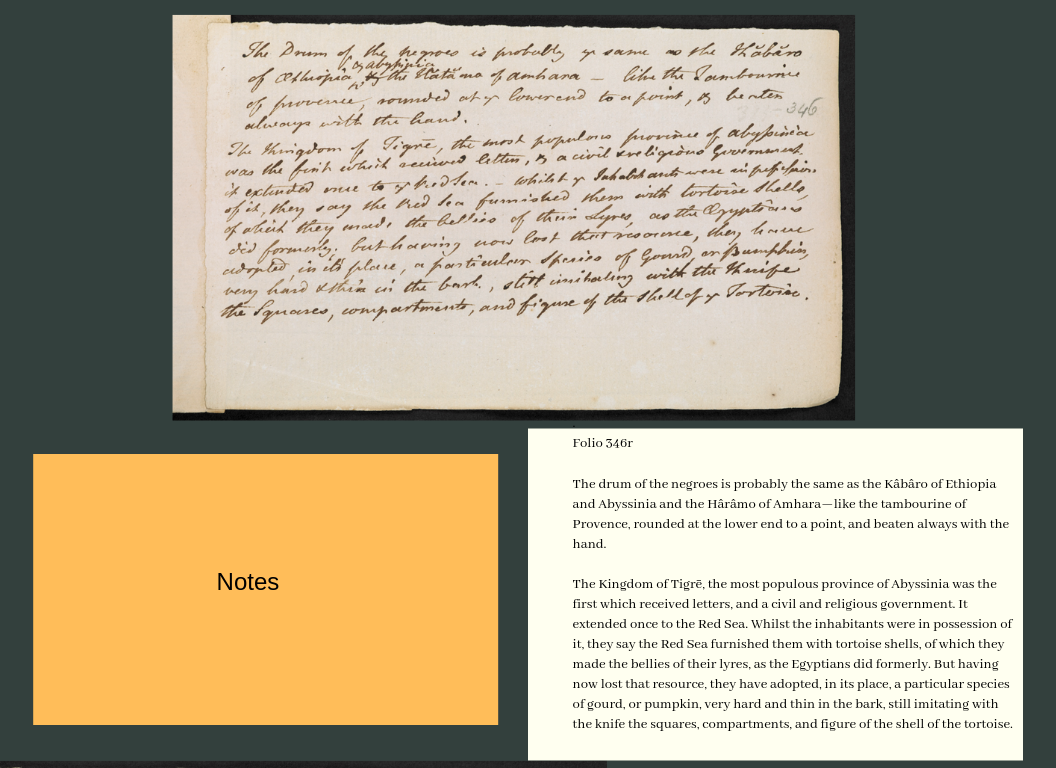 The Drum of the negroes is probably yͤ same as the Kâbâro
& abyssinia
of Æthiopia, & the Hatāmo of amhara – like the Tambourine
of provence, rounded at yͤ lower end to a point, & beaten
346
always with the hand.
The Kingdom of Tigrē, the most populous province of abyssinia
was the first which received letters, & a civil & religious Government.
it extended once to yͤ Red Sea. – whilst yͤ Inhabitants were in possession
of it, they say the Red Sea furnished them with tortoise shells,
of which they made the bellies of their Lyres, as the Egyptians
did formerly. but having now lost that resource, they have
adopted, in its place, a particular species of Gourd, or Pumpkin,
very hard & thin in the bark, still imitating with the Knife
the Squares, compartments, and figure of the Shell of yͤ Tortoise.
Folio 346r
The drum of the negroes is probably the same as the Kâbâro of Ethiopia
and Abyssinia and the Hârâmo of Amhara—like the tambourine of
Provence, rounded at the lower end to a point, and beaten always with the
hand.
The Kingdom of Tigrē, the most populous province of Abyssinia was the
first which received letters, and a civil and religious government. It
extended once to the Red Sea. Whilst the inhabitants were in possession of
it, they say the Red Sea furnished them with tortoise shells, of which they
made the bellies of their lyres, as the Egyptians did formerly. But having
now lost that resource, they have adopted, in its place, a particular species
of gourd, or pumpkin, very hard and thin in the bark, still imitating with
the knife the squares, compartments, and figure of the shell of the tortoise.
Notes